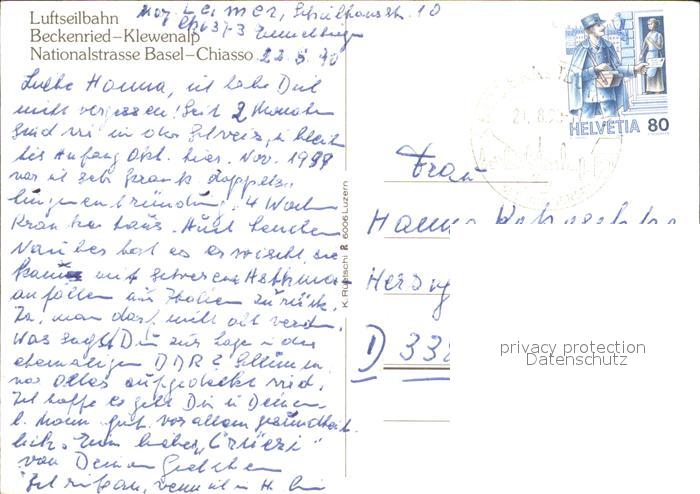 Luftseilbahn
Beckenried–Klewenalp
Nationalstrasse Basel–Chiasso
Leimer, Schulhausstr. 10
22.8.90
Liebe Hanna, ich habe Dich
nicht vergessen! Seit 2 Monaten
sind wir in der Schweiz, u. bleiben
bis Anfang Okt. hier. Nov. 1989
war ich sehr krank doppelte
4 Wochen
Krankenhaus. Auch
hat es erwischt, sie
kam mit schweren Asthma-
anfällen aus Italien zurück.
Ja, man darf nicht alt werden.
Was sagst Du zur Lage in der
ehemaligen DDR? Schlimm,
was alles aufgedeckt wird.
Ich hoffe es geht Dir u. Deinem
l. Mann gut, vor allem gesundheit-
lich. Zum
von Deiner
wenn ich in H. bin
K. Rüetschi 6006 Luzern
HELVETIA 80
21.8.90
Frau
Hanna
D 338
privacy protection
Datenschutz